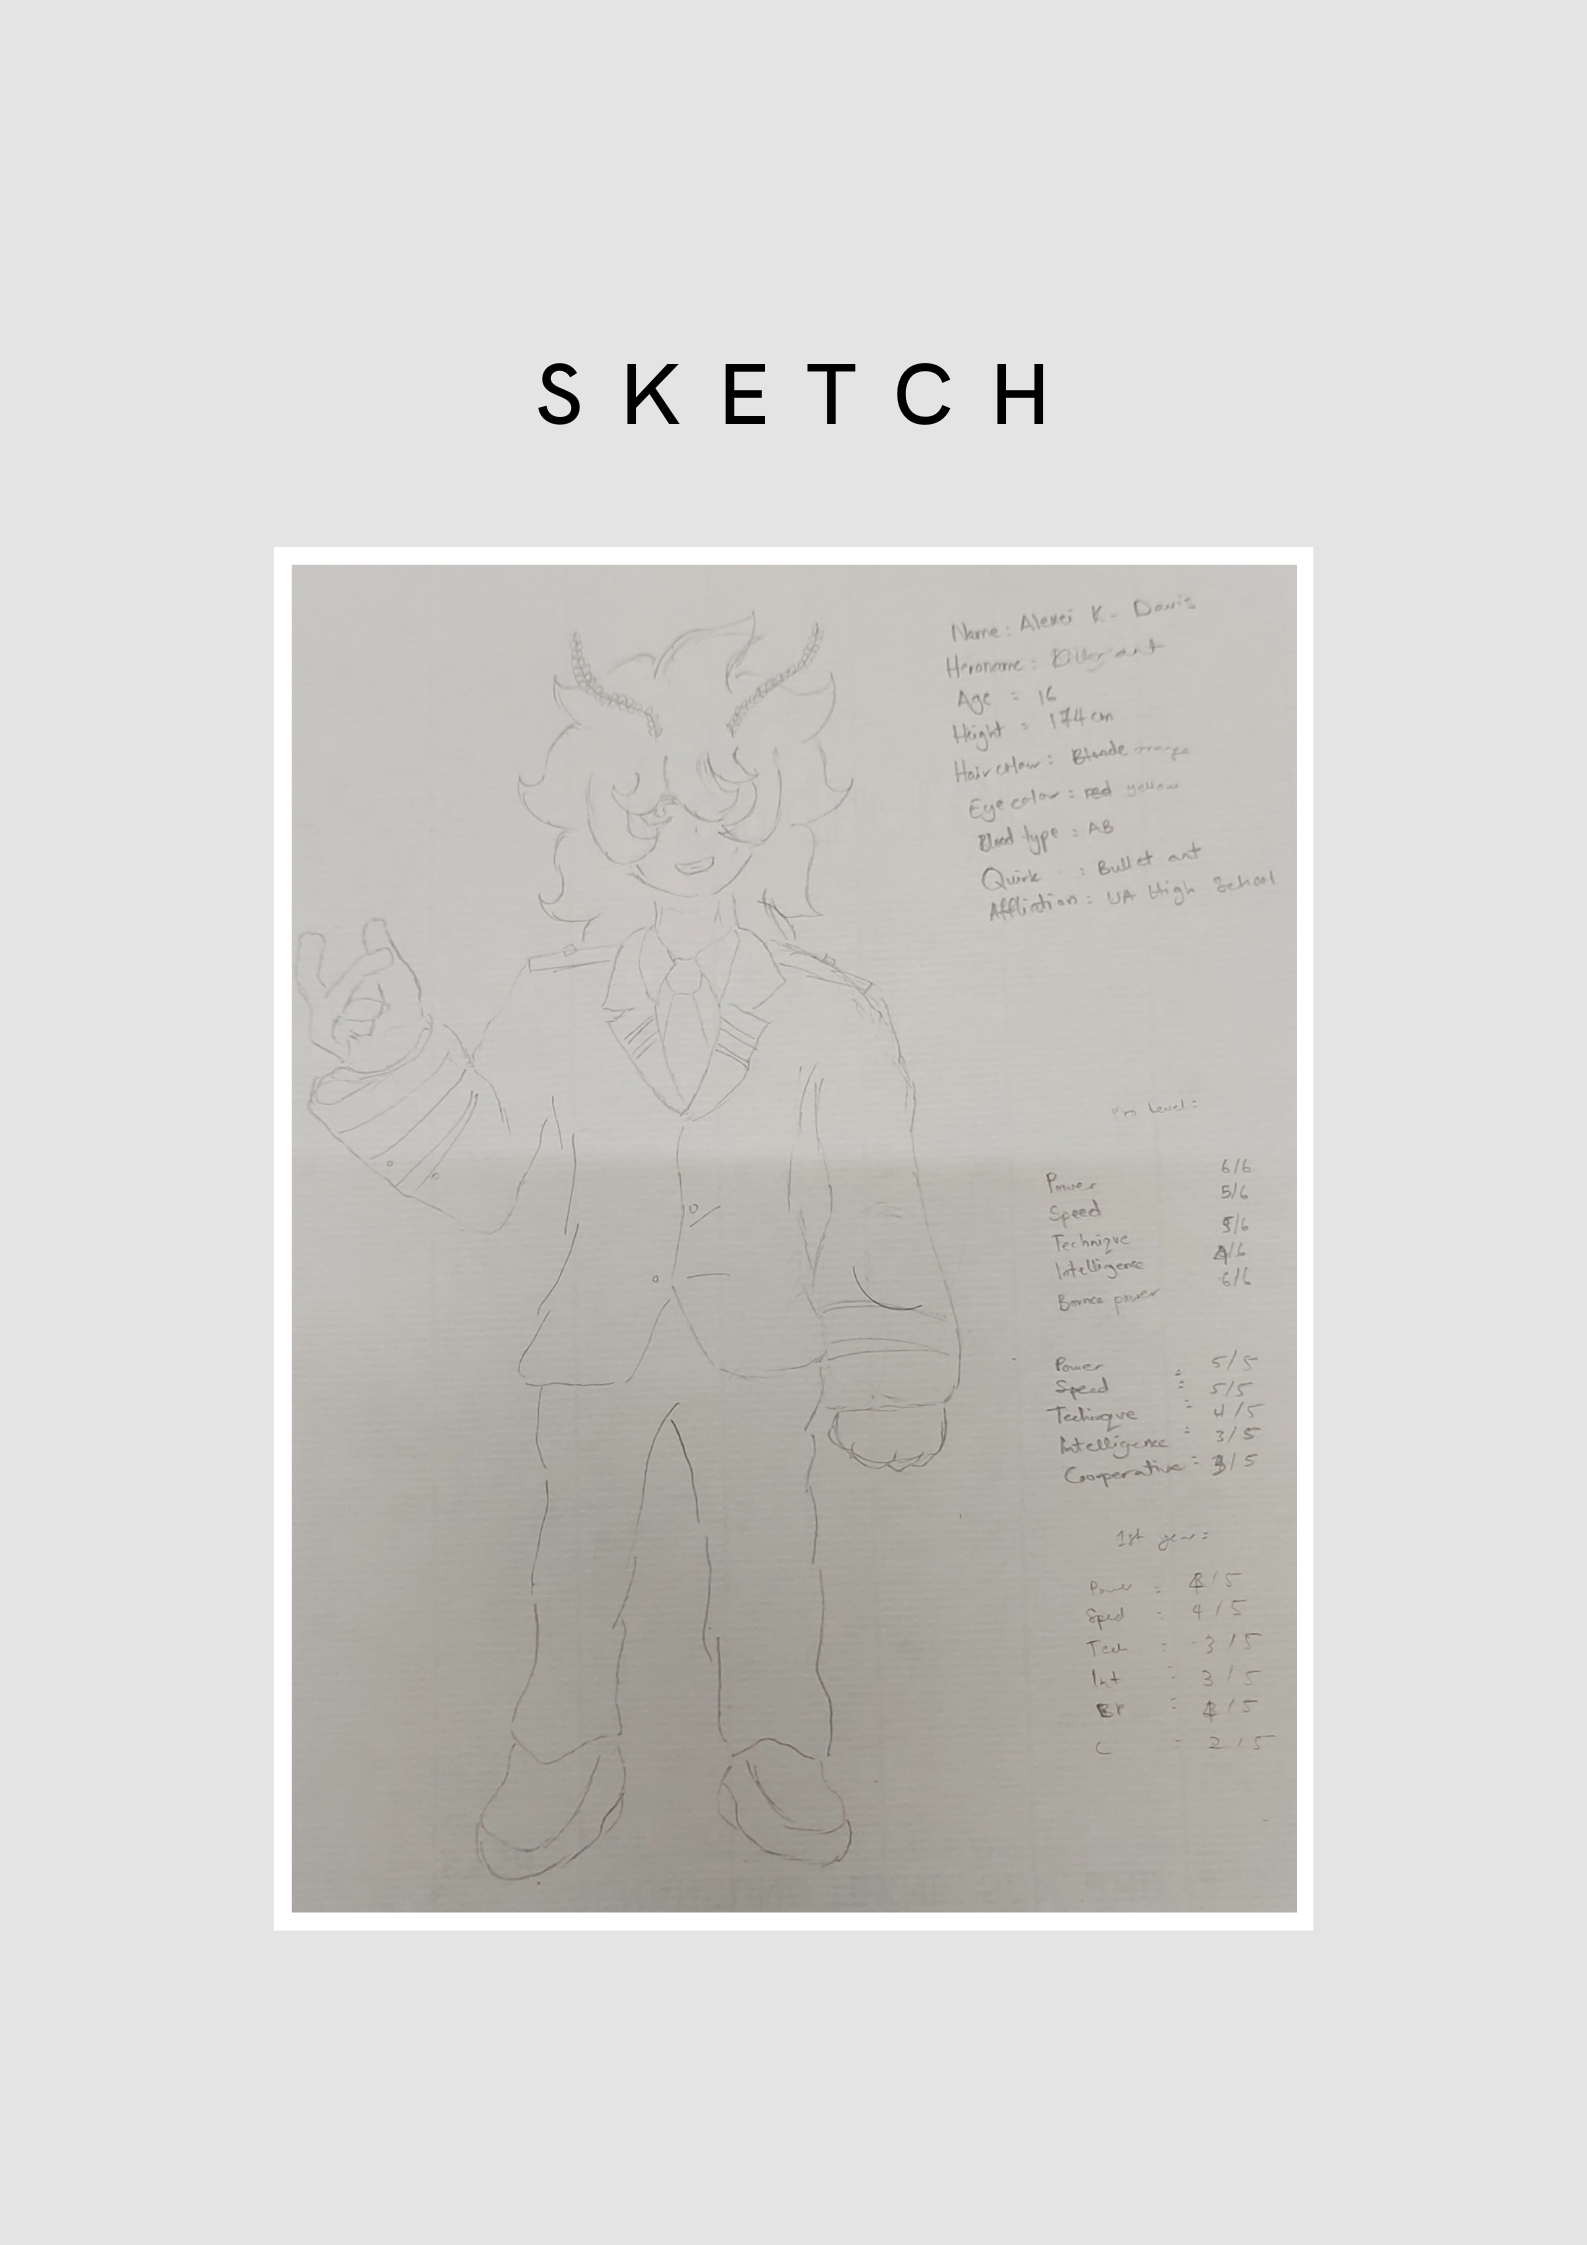 SKETCH
Name: Alexei K. Davis
Heroname:
Age : 16
Height : 174cm
Hair colour: Blonde orange
Eye colour: red yellow
Blood type : AB
Quirk : Bullet ant
Affliation: UA High School
Pro Level:
Power 6/6
Speed 5/6
Technique 5/6
Intelligence 4/6
Bounce power 6/6
Power : 5/5
Speed : 5/5
Technique : 4/5
Intelligence : 3/5
Cooperative : 3/5
1st year:
Power : /5
Sped : 4/5
Tech : 3/5
Int : 3/5
BP : /5
C : 2/5